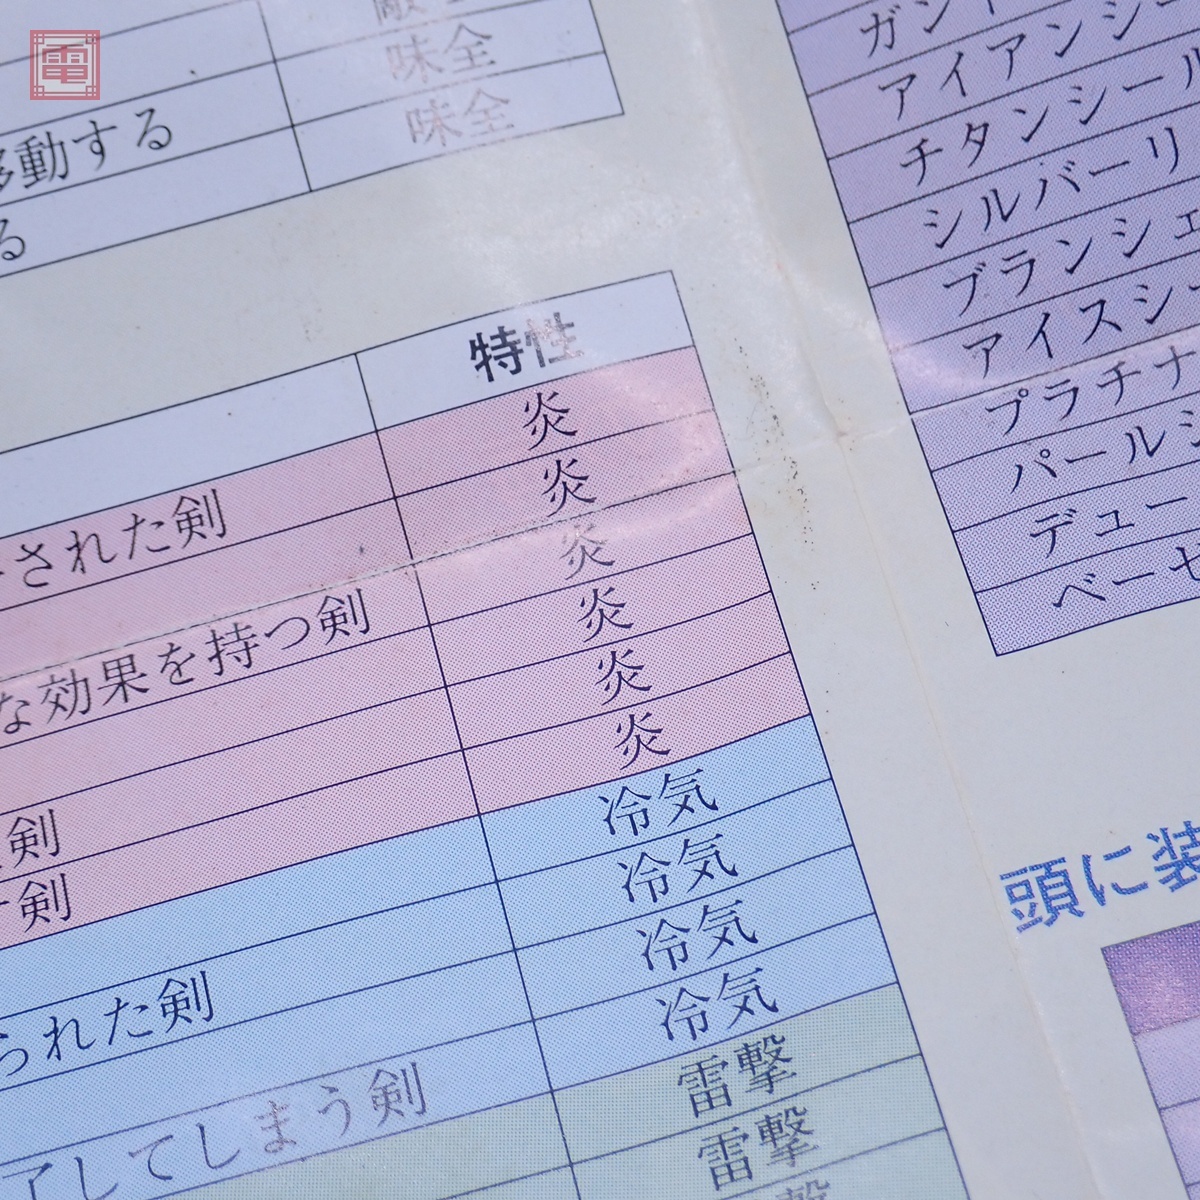 電
味全
移動する
味全
る
特性
炎
された剣
炎
炎
な効果を持つ剣
炎
炎
剣
炎
剣
冷気
冷気
られた剣
冷気
冷気
してしまう剣
雷撃
雷撃
撃
ガン
アイアンシー
チタンシール
シルバーリ
ブランシェ
アイスシー
プラチナ
パールシ
デュー
ベーセ
頭に装